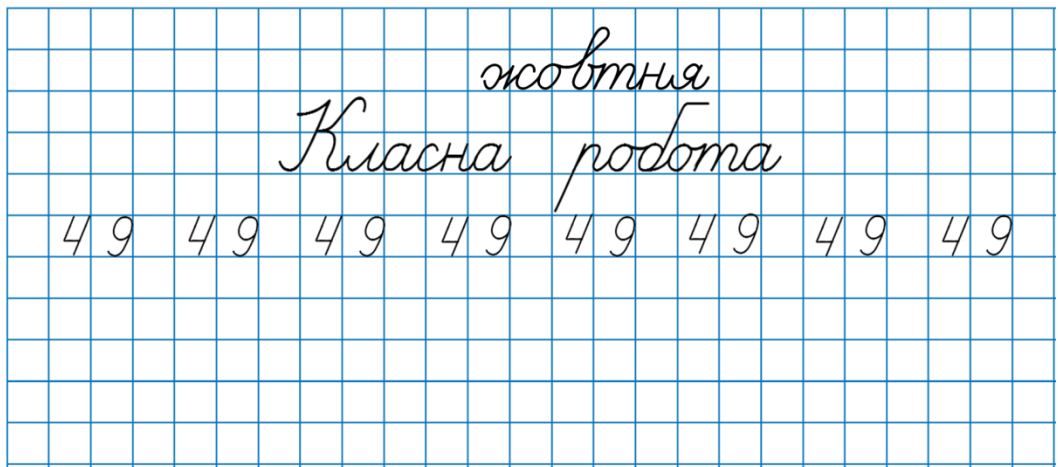 жовтня
Класна робота
49 49 49 49 49 49 49 49